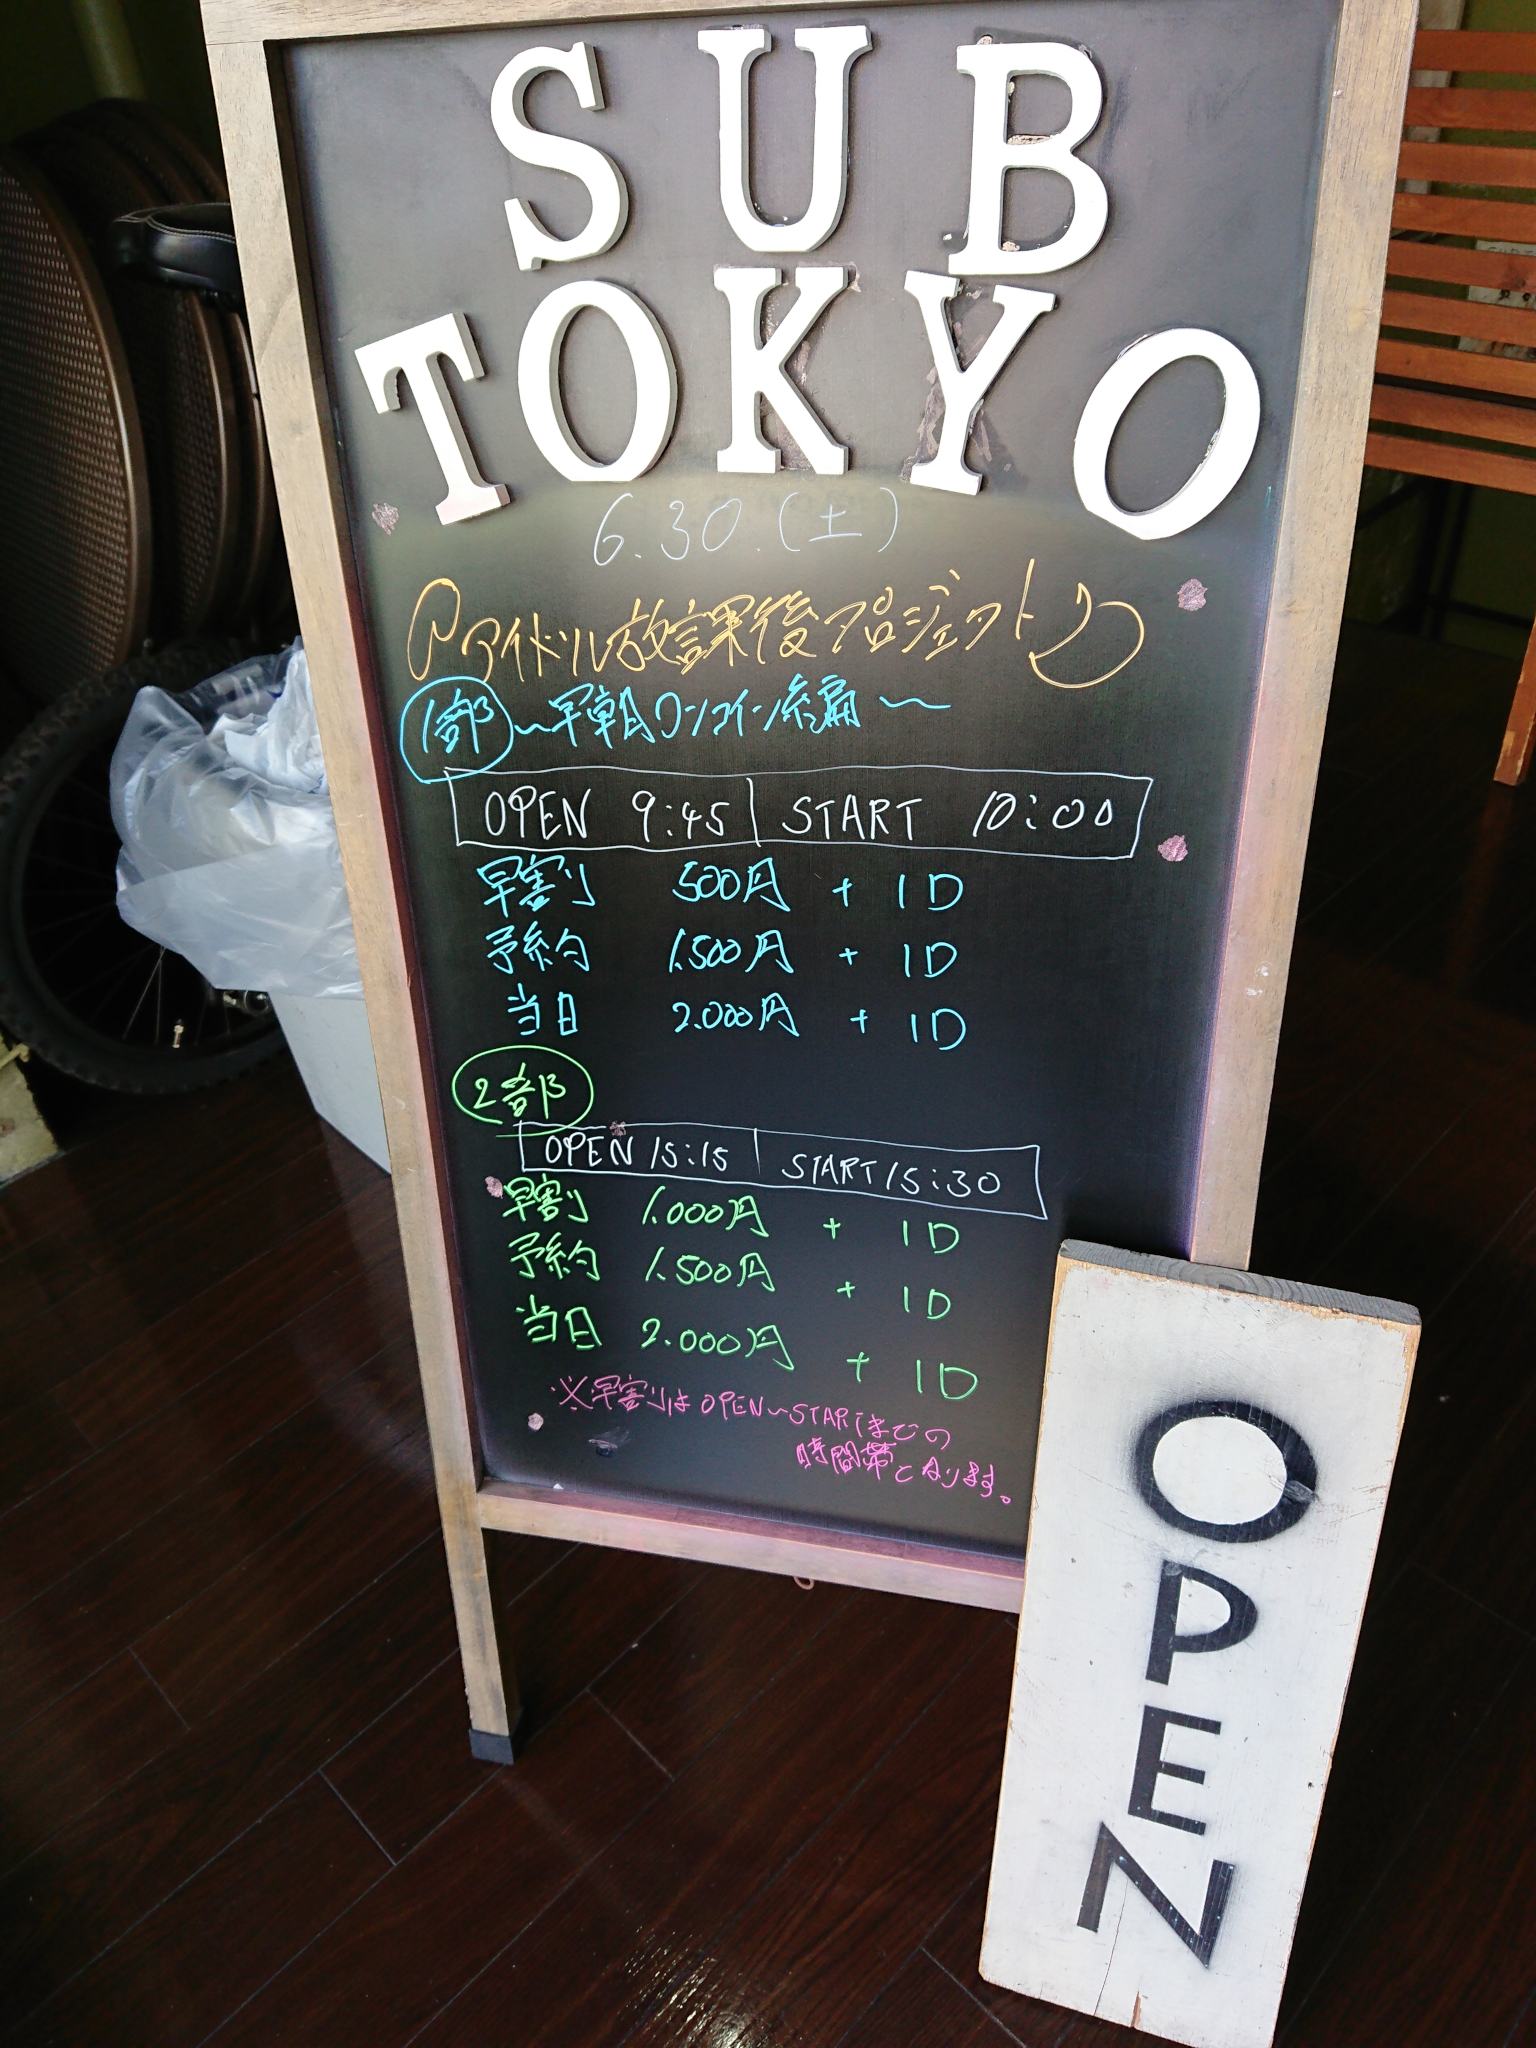 SUB
TOKYO
6.30.(土)
アイドル放課後プロジェクト
1部 〜早朝ワンコイン編〜
OPEN 9:45 START 10:00
早割り 500円 + 1D
予約 1.500円 + 1D
当日 2.000円 + 1D
2部
OPEN 15:15 START 15:30
早割り 1.000円 + 1D
予約 1.500円 + 1D
当日 2.000円 + 1D
※早割りはOPEN〜STARTまでの
時間帯となります。
OPEN